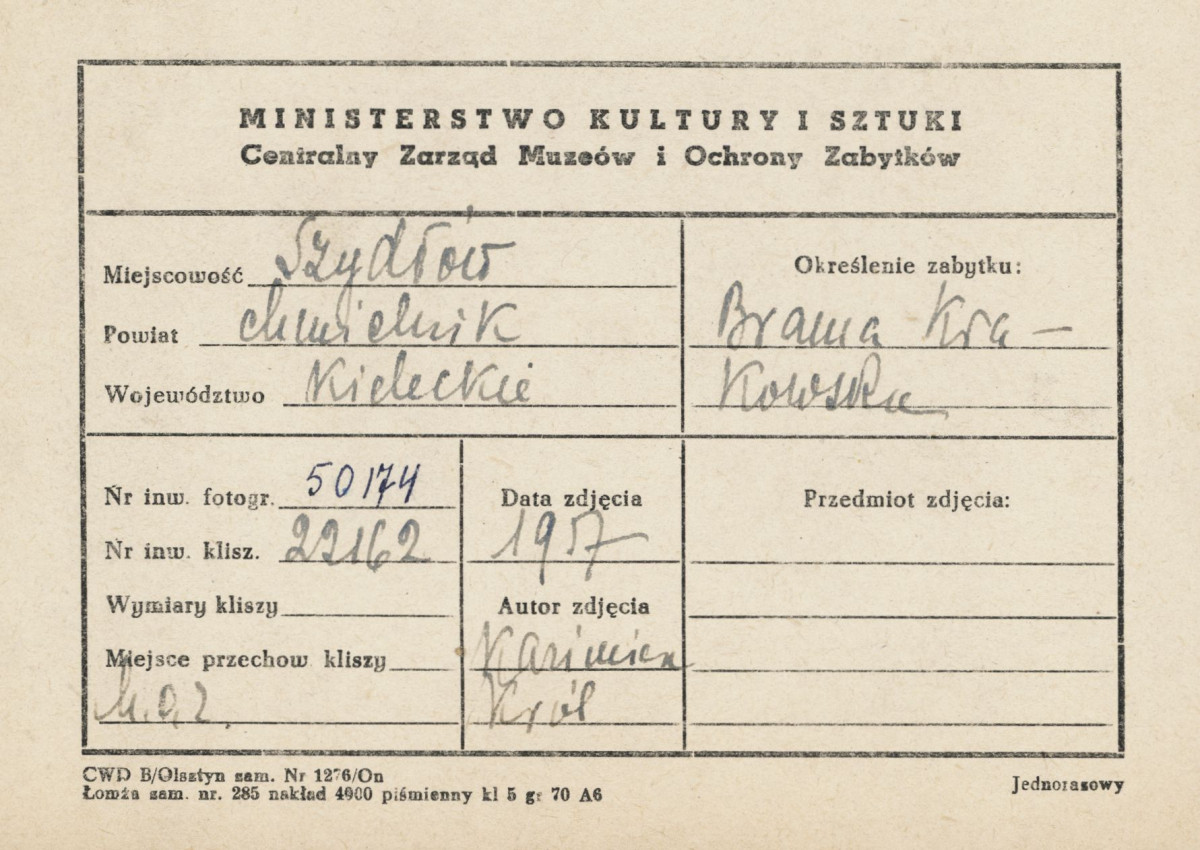 MINISTERSTWO KULTURY I SZTUKI
Centralny Zarząd Muzeów i Ochrony Zabytków
Miejscowość Szydłów
Powiat chmielnik
Województwo Kieleckie
Określenie zabytku:
Brama Kra-
kowska
Nr inw. fotogr. 50174
Nr inw. klisz. 22162
Wymiary kliszy
Miejsce przechow kliszy
M.O.Z.
Data zdjęcia
1957
Autor zdjęcia
Kazimierz
Król
Przedmiot zdjęcia:
CWD B/Olsztyn zam. Nr 1276/On
Łomża zam. nr. 285 nakład 4900 piśmienny kl 5 gr 70 A6
Jednorazowy